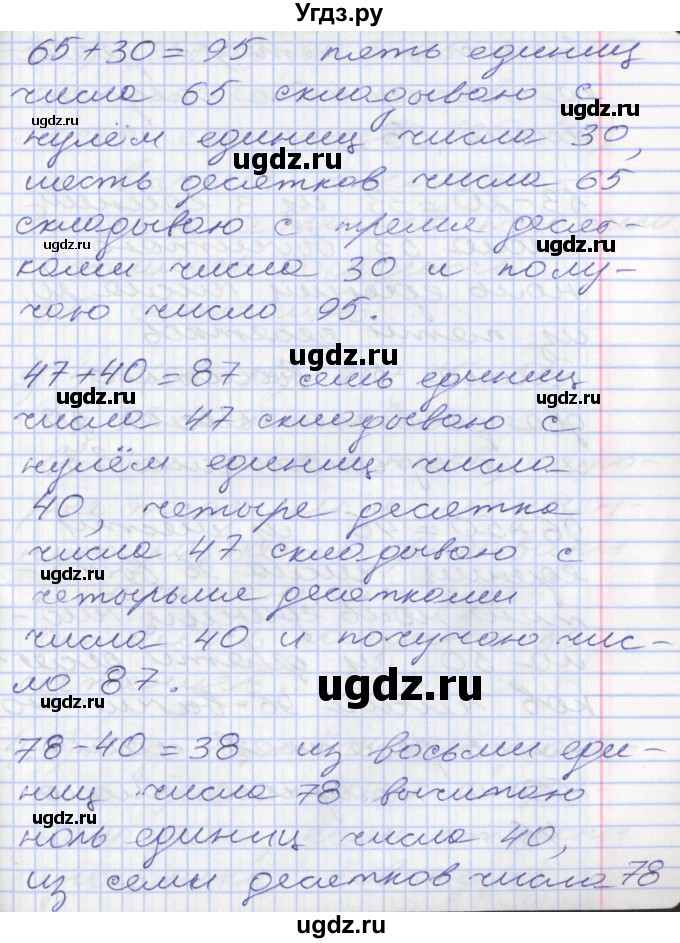 Угдз.ру
65+30=95 пять единиц
числа 65 складываю с
нулём единиц числа 30,
ugdz.ru
ugdz.ru
шесть десятков числа 65
ugdz.ru
складываю с тремя десят-
ugdz.ru
ugdz.ru
ками числа 30 и полу-
чаю число 95.
ugdz.ru
47+40=87 семь единиц
ugdz.ru
ugdz.ru
числа 47 складываю с
нулём единиц числа
40, четыре десятка
числа 47 складываю с
ugdz.ru
четырьмя десятками
числа 40 и получаю чис-
ло 87.
ugdz.ru
78-40=38 из восьми еди-
ниц числа 78 вычитаю
ugdz.ru
ugdz.ru
ноль единиц числа 40,
из семи десятков числа 78
ugdz.ru